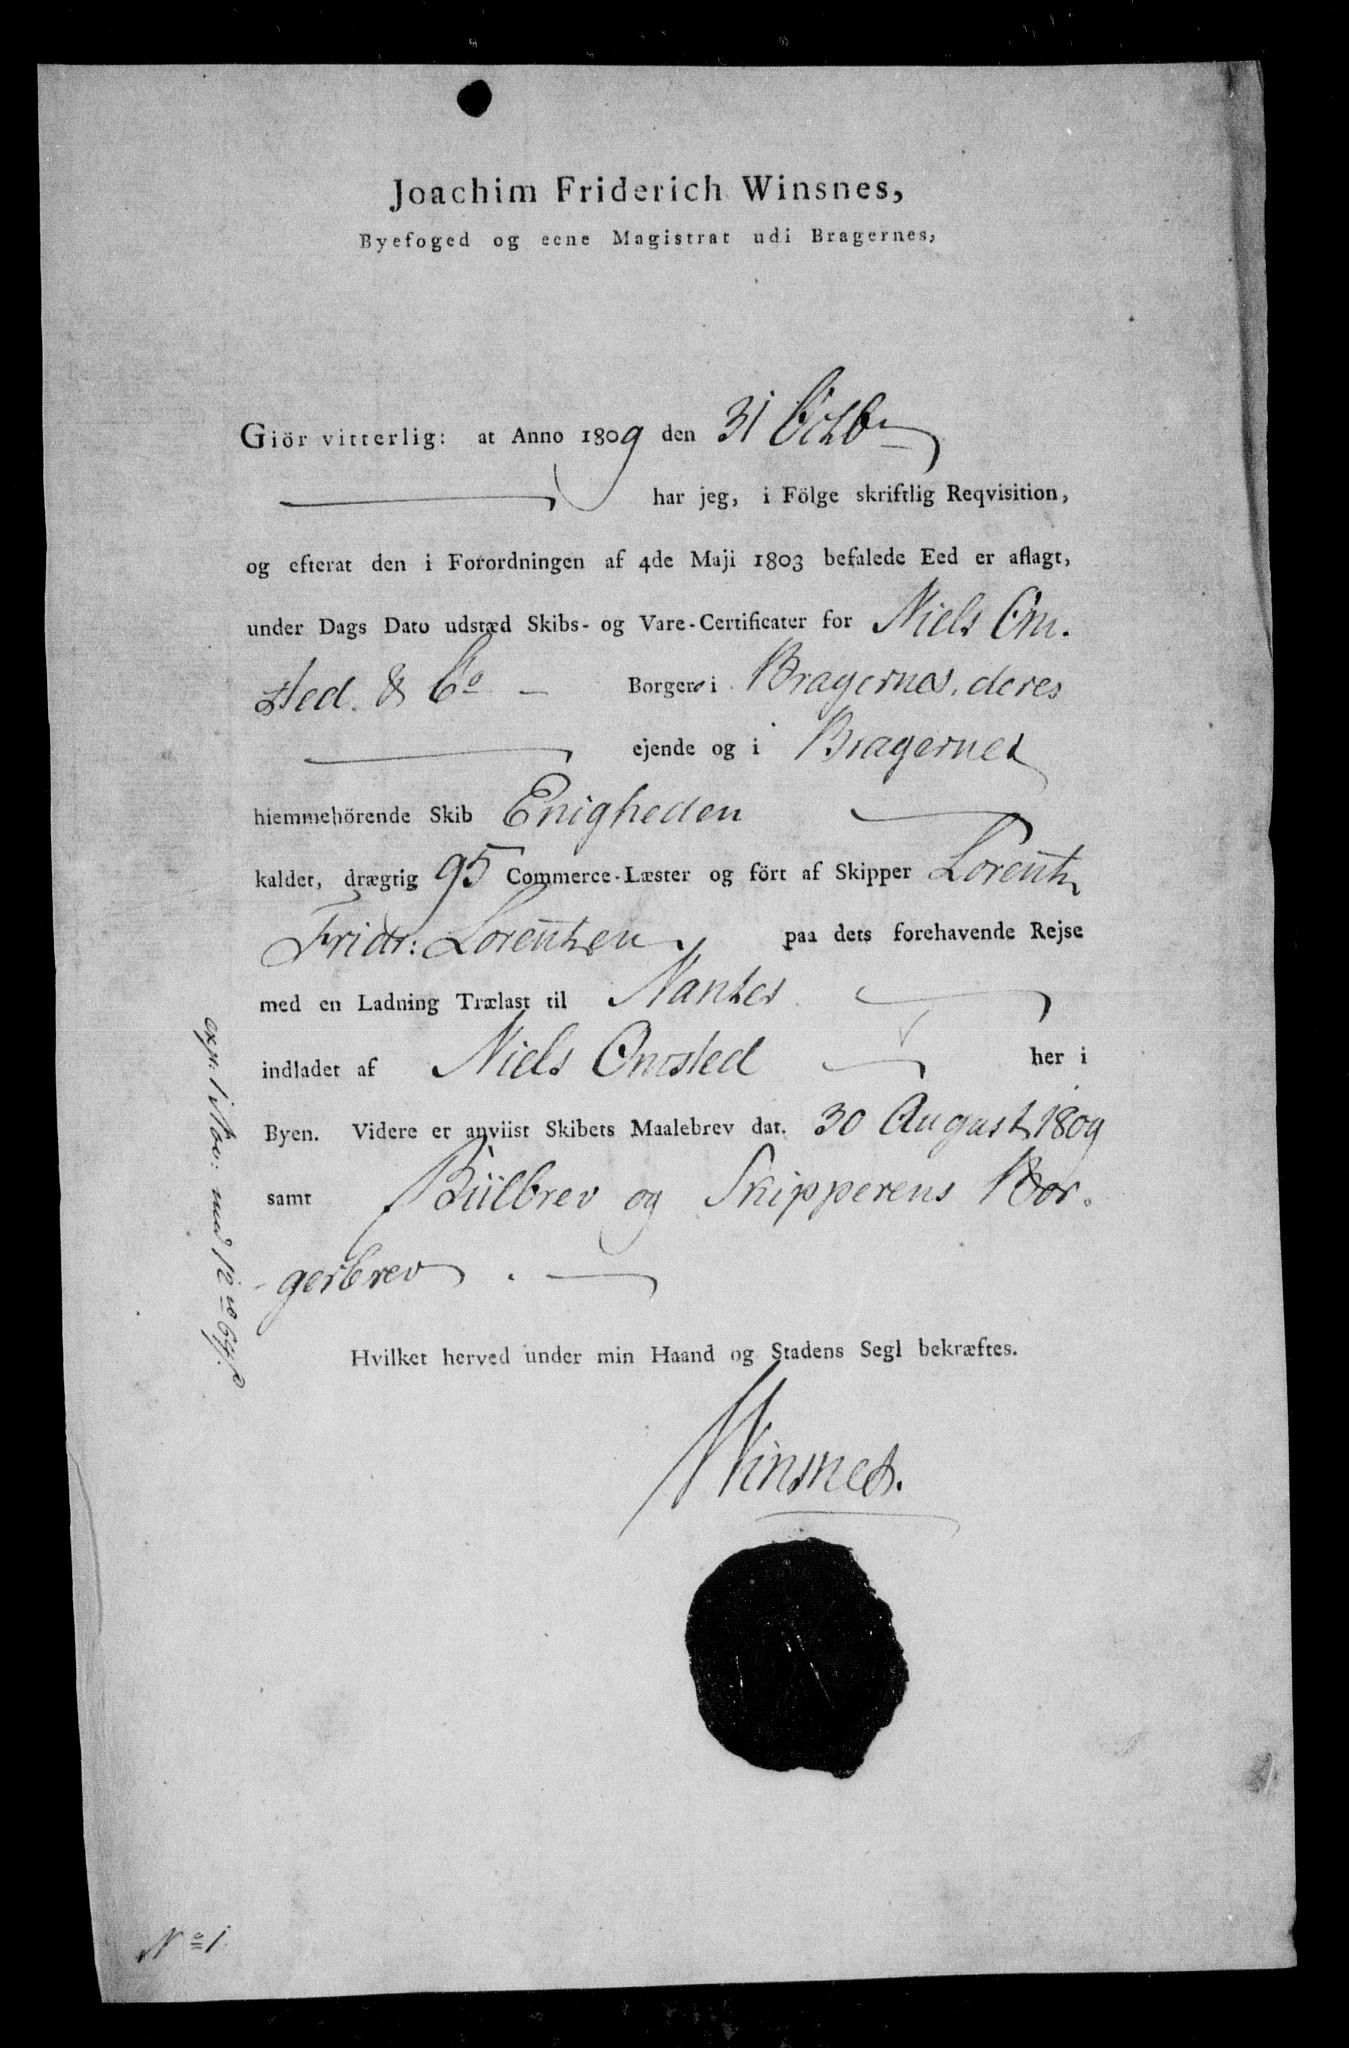 Joachim Friderich Winsnes,
Byefoged og eene Magistrat udi Bragernes,
Giör vitterlig: at Anno 1809 den 31 Octbr
har jeg, i Fölge skriftlig Reqvisition,
og efterat den i Forordningen af 4de Maji 1803 befalede Eed er aflagt,
under Dags Dato udstæd Skibs- og Vare-Certificater for Niels Om-
sted & Co Borgere i Bragernes, deres
ejende og i Bragernes
hiemmehörende Skib Enigheden
kaldet, drægtig 95 Commerce-Læster og fört af Skipper Lorentz
Fridr: Lorentzen paa dets forehavende Rejse
med en Ladning Trælast til Nantes
indladet af Niels Omsted her i
Byen. Videre er anviist Skibets Maalebrev dat. 30 August 1809
samt Biilbrev og Skipperens Bor-
gerbrev.
Hvilket herved under min Haand og Stadens Segl bekræftes.
Winsnes.
exp. 1 Nov: med 12
No 1.